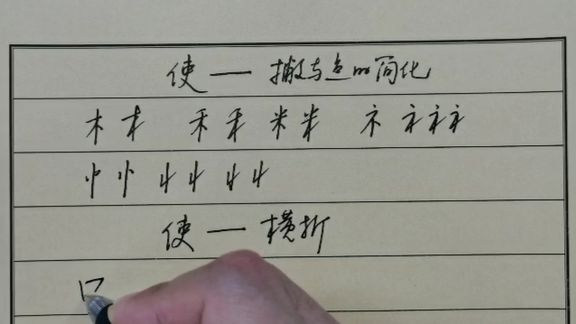 使一撇与点的简化
木 木 禾 禾 米 米 礻 礻 衤 衤
忄 忄 丬 丬 丬 丬
使一横折